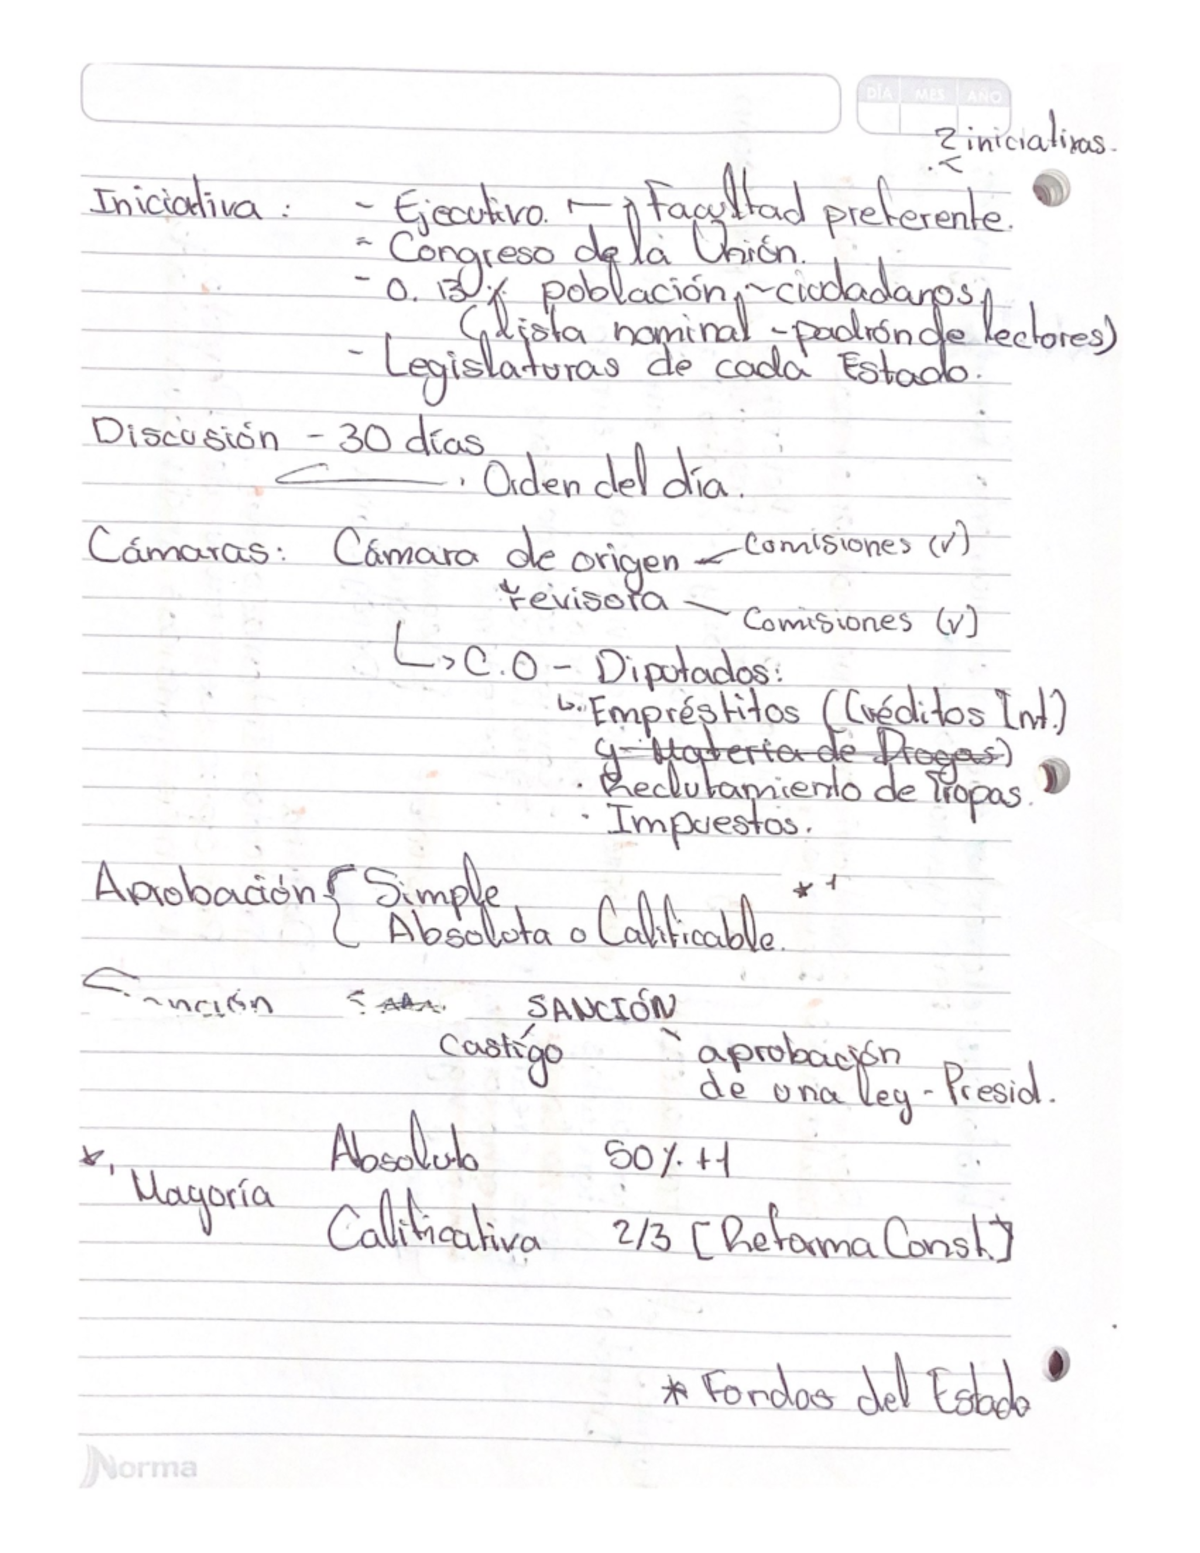 DÍA MES AÑO
2 iniciativas.
Iniciativa : - Ejecutivo. → Facultad preferente.
- Congreso de la Unión.
- 0.13% población, ~ciudadanos,
(lista nominal - padrón de lectores)
- Legislaturas de cada Estado.
Discusión - 30 días
. Orden del día.
Cámaras: Cámara de origen - Comisiones (v)
* revisora - Comisiones (v)
↳ C.O - Diputados:
↳ Empréstitos (Créditos Int.)
y Materia de Drogas)
· Reclutamiento de Tropas.
· Impuestos.
Aprobación { Simple *1
Absoluta o Calificable.
Sanción SANCIÓN
castigo aprobación
de una ley - Presid.
Absoluto 50% +1
*1 Mayoría
Calificativa 2/3 [Reforma Const.]
* Fondos del Estado
Norma